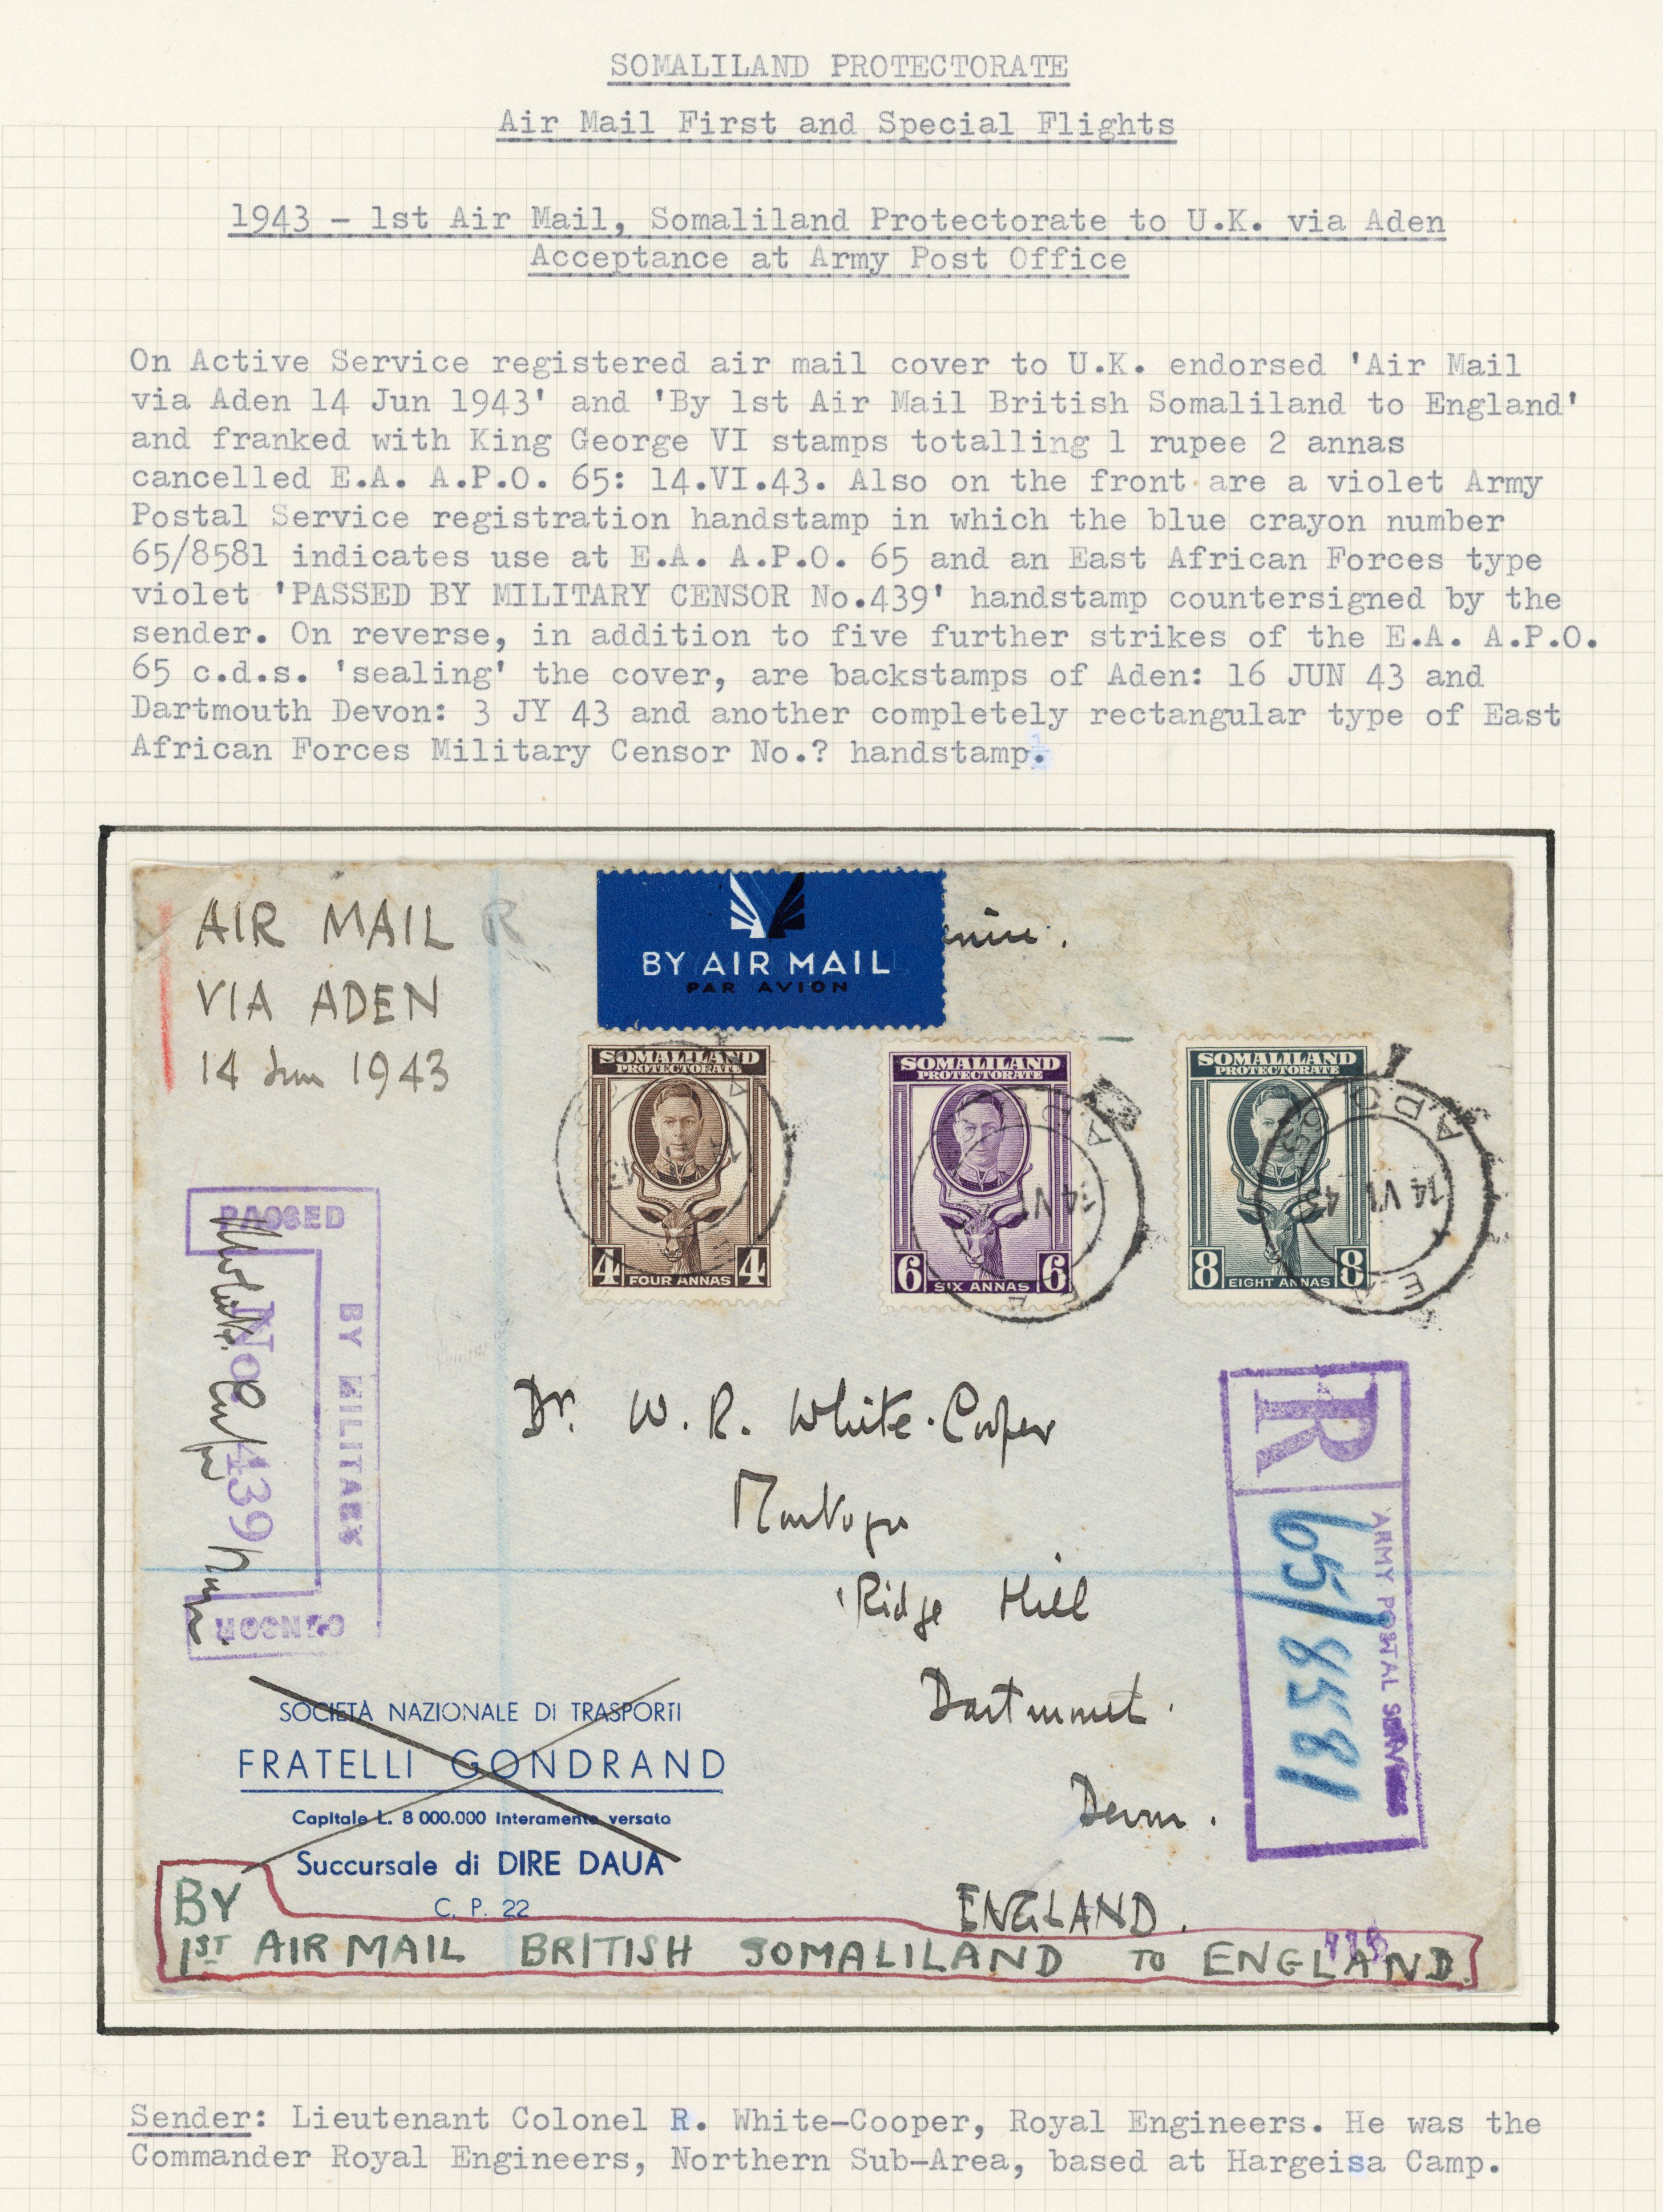 SOMALILAND PROTECTORATE
Air Mail First and Special Flights
1943 - 1st Air Mail, Somaliland Protectorate to U.K. via Aden
Acceptance at Army Post Office
On Active Service registered air mail cover to U.K. endorsed 'Air Mail
via Aden 14 Jun 1943' and 'By 1st Air Mail British Somaliland to England'
and franked with King George VI stamps totalling 1 rupee 2 annas
cancelled E.A. A.P.O. 65: 14.VI.43. Also on the front are a violet Army
Postal Service registration handstamp in which the blue crayon number
65/8581 indicates use at E.A. A.P.O. 65 and an East African Forces type
violet 'PASSED BY MILITARY CENSOR No.439' handstamp countersigned by the
sender. On reverse, in addition to five further strikes of the E.A. A.P.O.
65 c.d.s. 'sealing' the cover, are backstamps of Aden: 16 JUN 43 and
Dartmouth Devon: 3 JY 43 and another completely rectangular type of East
African Forces Military Censor No.? handstamp.
AIR MAIL R
VIA ADEN
14 Jun 1943
BY AIR MAIL
PAR AVION
SOMALILAND
PROTECTORATE
4 FOUR ANNAS 4
SOMALILAND
PROTECTORATE
6 SIX ANNAS 6
SOMALILAND
PROTECTORATE
8 EIGHT ANNAS 8
A.P.O.
14 VI
E A
A.P.O. 65
14 VI 43
E A
PASSED
BY MILITARY
CENSOR
No 439
Dr. W. R. White-Cooper
Ridge Hill
Dartmouth
Devon.
ENGLAND.
R
ARMY POSTAL SERVICE
65/8581
SOCIETÀ NAZIONALE DI TRASPORTI
FRATELLI GONDRAND
Capitale L. 8 000.000 interamente versato
Succursale di DIRE DAUA
C. P. 22
BY
1ST AIR MAIL BRITISH SOMALILAND TO ENGLAND.
Sender: Lieutenant Colonel R. White-Cooper, Royal Engineers. He was the
Commander Royal Engineers, Northern Sub-Area, based at Hargeisa Camp.